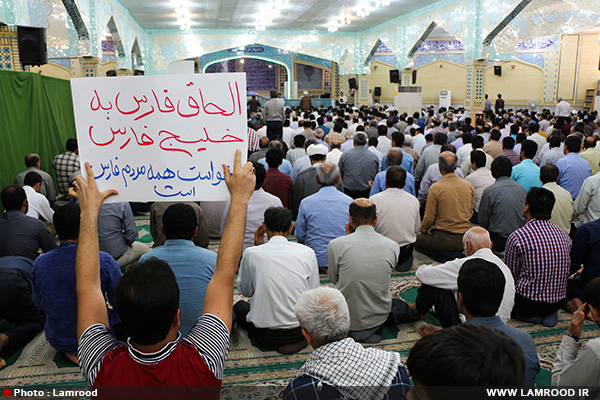 الحاق فارس به
خلیج فارس
خواست همه مردم فارس
است
Photo : Lamrood
WWW.LAMROOD.IR